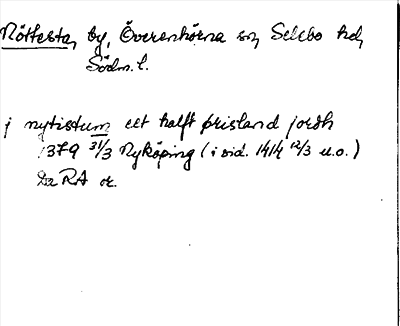 Nöttesta, by, Överenhörna sn, Selebo hd,
Södm. l.
j nytistum ett halft örisland jordh
1379 31/3 Nyköping (i vid. 1414 12/3 u.o.)
RA or.